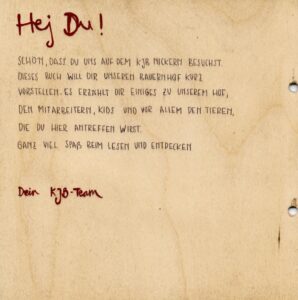 Hej Du!
SCHÖN, DASS DU UNS AUF DEM KJB NICKERN BESUCHST.
DIESES BUCH WILL DIR UNSEREN BAUERNHOF KURZ
VORSTELLEN. ES ERZÄHLT DIR EINIGES ZU UNSEREM HOF,
DEN MITARBEITERN, KIDS UND VOR ALLEM DEN TIEREN,
DIE DU HIER ANTREFFEN WIRST.
GANZ VIEL SPAß BEIM LESEN UND ENTDECKEN
Dein KJB-Team